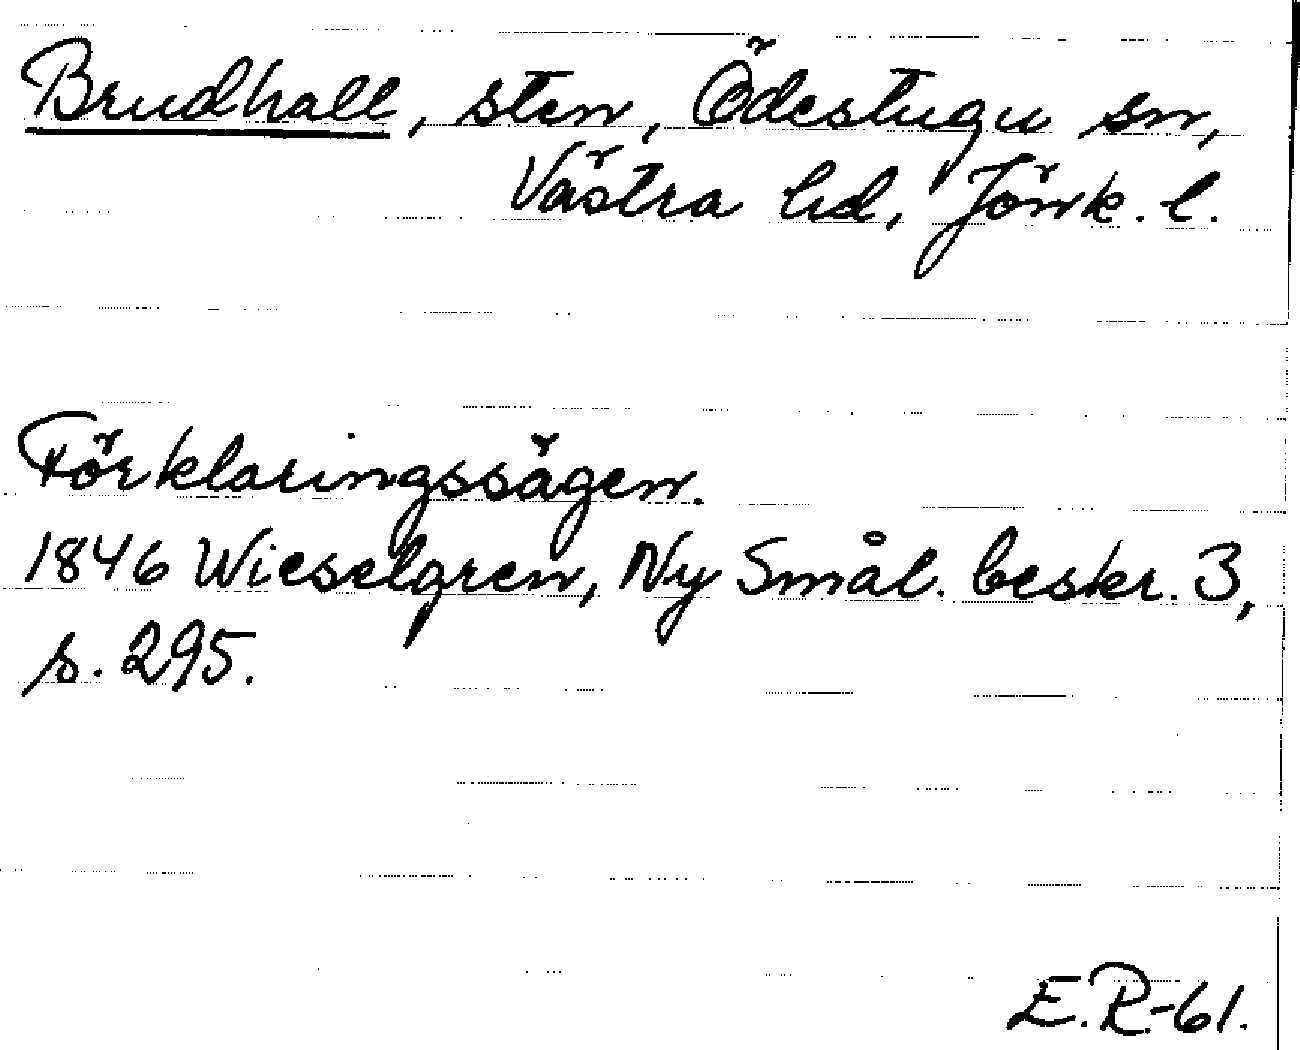 Brudhall, sten, Ödestugu sn,
Västra hd, Jönk. l.
Förklaringssägen.
1846 Wieselgren, Ny Smål. beskr. 3,
s. 295.
E.R-61.